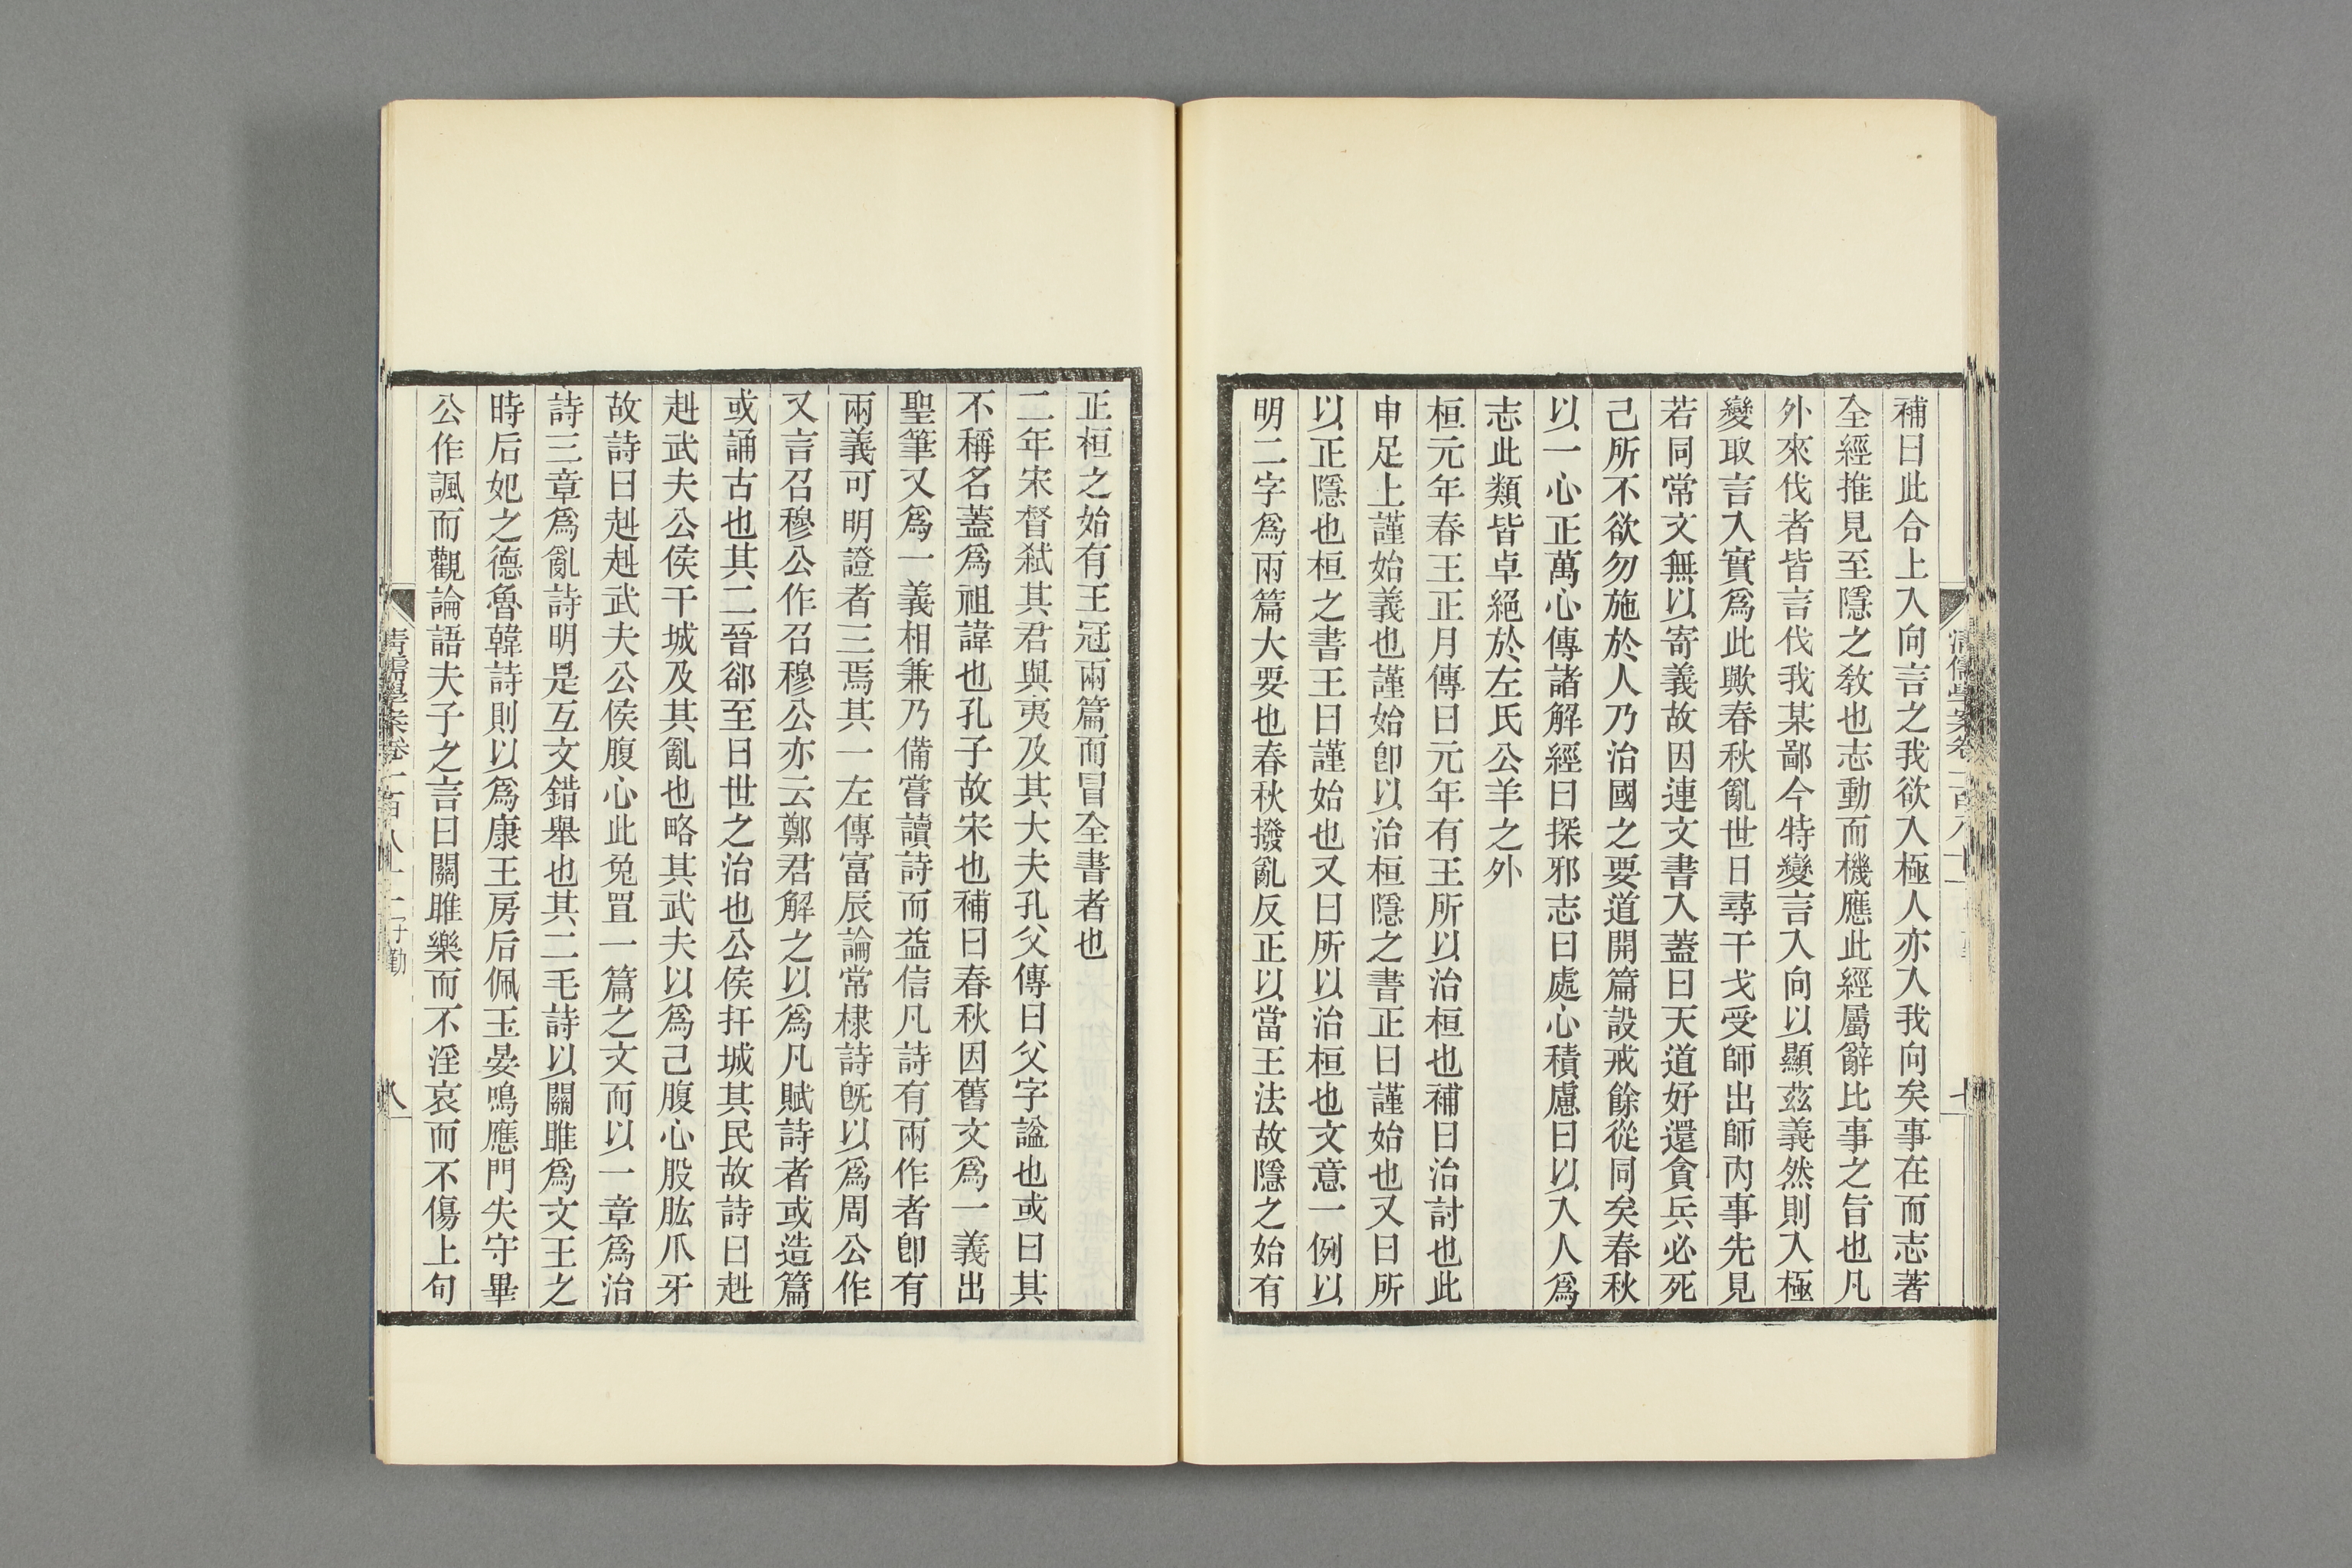 補曰此合上入向言之我欲入極人亦入我向矣事在而志著
全經推見至隱之敎也志動而機應此經屬辭比事之旨也凡
外來伐者皆言伐我某鄙今特變言入向以顯茲義然則入極
變取言入實爲此歟春秋亂世日尋干戈受師出師內事先見
若同常文無以寄義故因連文書入蓋曰天道好還貪兵必死
己所不欲勿施於人乃治國之要道開篇設戒餘從同矣春秋
以一心正萬心傳諸解經曰探邪志曰處心積慮曰以入人爲
志此類皆卓絕於左氏公羊之外
桓元年春王正月傳曰元年有王所以治桓也補曰治討也此
申足上謹始義也謹始卽以治桓隱之書正曰謹始也又曰所
以正隱也桓之書王曰謹始也又曰所以治桓也文意一例以
明二字爲兩篇大要也春秋撥亂反正以當王法故隱之始有
正桓之始有王冠兩篇而冒全書者也
二年宋督弒其君與夷及其大夫孔父傳曰父字諡也或曰其
不稱名蓋爲祖諱也孔子故宋也補曰春秋因舊文爲一義出
聖筆又爲一義相兼乃備嘗讀詩而益信凡詩有兩作者卽有
兩義可明證者三焉其一左傳富辰論常棣詩旣以爲周公作
又言召穆公作召穆公亦云鄭君解之以爲凡賦詩者或造篇
或誦古也其二晉郤至曰世之治也公侯扞城其民故詩曰赳
赳武夫公侯干城及其亂也略其武夫以爲己腹心股肱爪牙
故詩曰赳赳武夫公侯腹心此兔罝一篇之文而以一章爲治
詩三章爲亂詩明是互文錯舉也其二毛詩以關雎爲文王之
時后妃之德魯韓詩則以爲康王房后佩玉晏鳴應門失守畢
公作諷而觀論語夫子之言曰關雎樂而不淫哀而不傷上句
清儒學案卷一百八十一 子勤
八